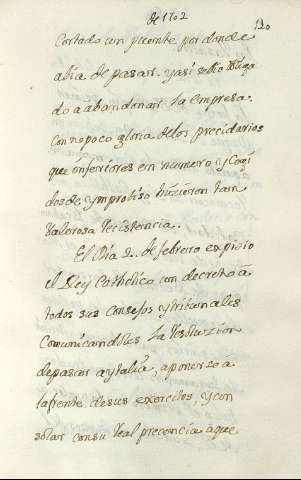 de 1702
120
Cortado un puente por donde
abia de pasar. yasi se bio obliga
do a abandonar la empresa.
Con no poco gloria de los precidarios
que ynferiores en numero, y Cogi
dos de ymprobiso hizieron tan
balerosa Recistencia..
El Dia 2.. de febrero expidio
el Rey Catholico un decreto â
todos sus Consejos ytribunales
Comunicandoles La Resoluzion
de pasar aytalia, a ponerse a
la frente de sus exercitos, y con
solar consu Real precencia aque